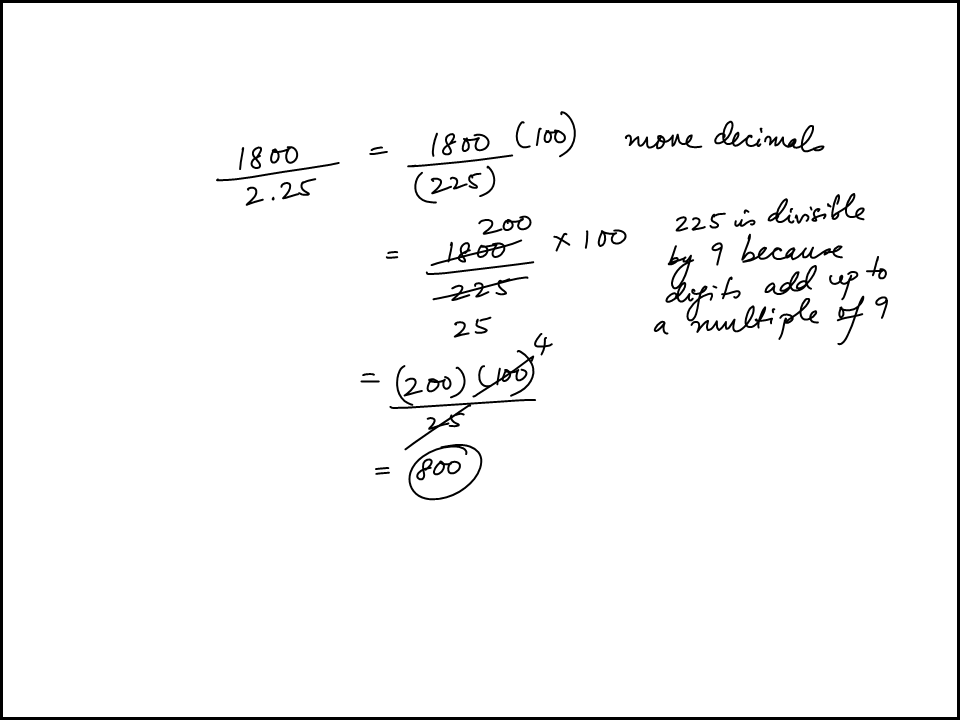 1800 / 2.25 = 1800 (100) / (225) move decimals
= 1800 200 / 225 25 × 100
225 is divisible
by 9 because
digits add up to
a multiple of 9
= (200) (100) 4 / 25
= 800